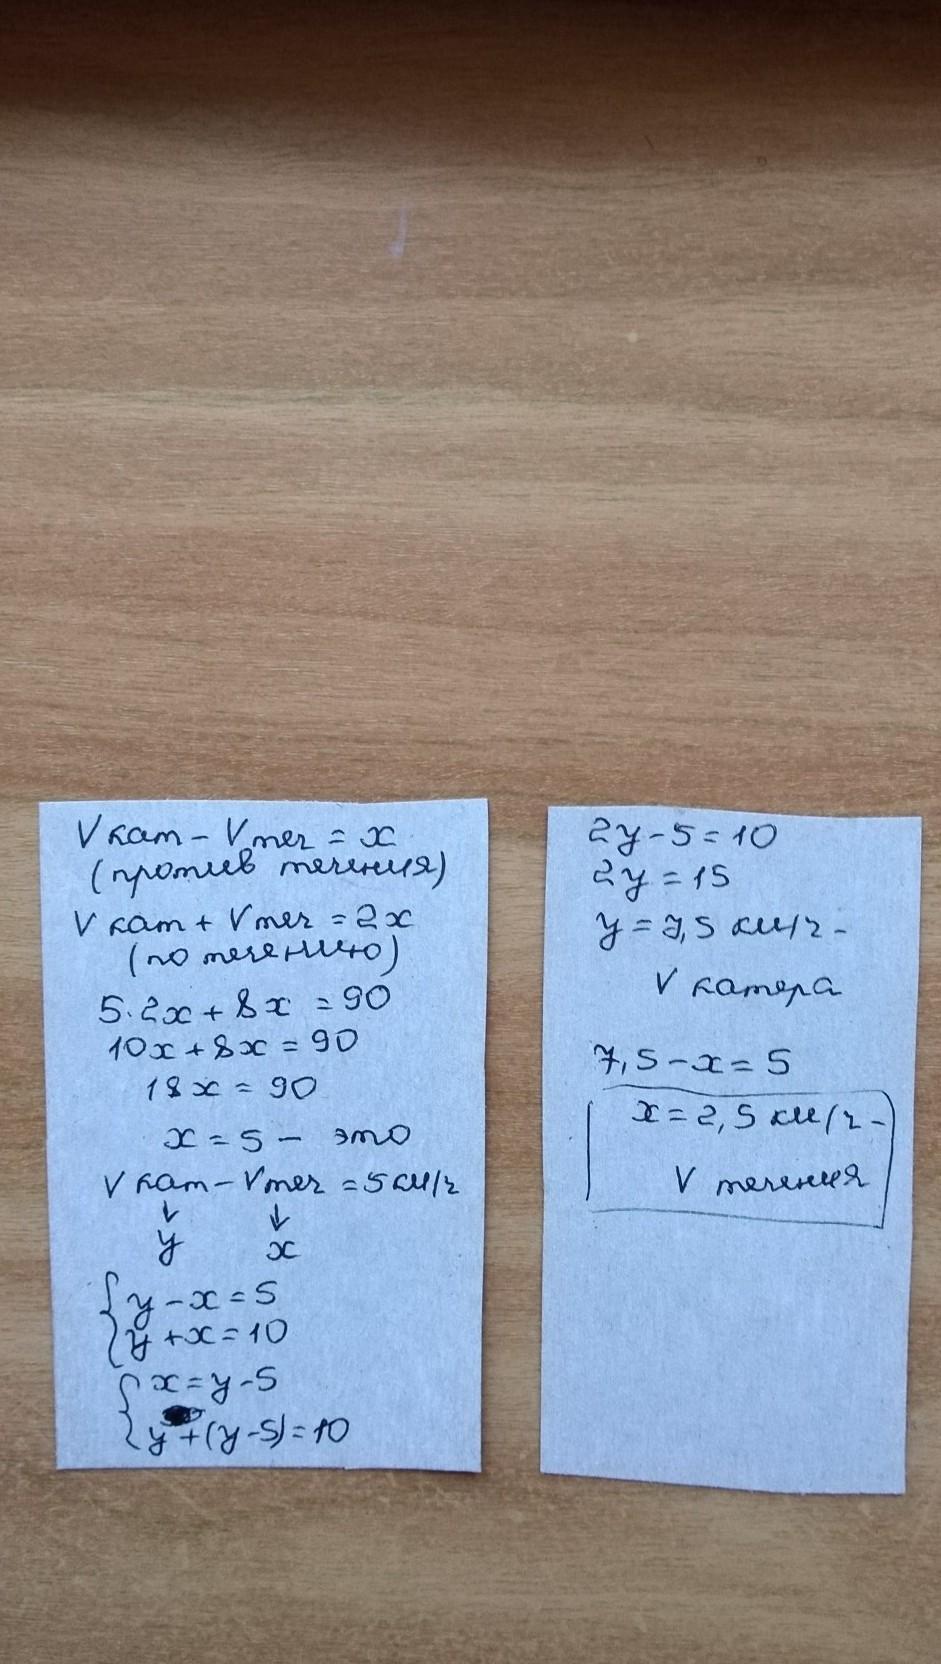 Vкат - Vтеч = x
(против течения)
Vкат + Vтеч = 2x
(по течению)
5·2x + 8x = 90
10x + 8x = 90
18x = 90
x = 5 - это
Vкат - Vтеч = 5 км/ч
↓ ↓
y x
{ y - x = 5
{ y + x = 10
{ x = y - 5
{ y + (y - 5) = 10
2y - 5 = 10
2y = 15
y = 7,5 км/ч -
V катера
7,5 - x = 5
x = 2,5 км/ч -
V течения